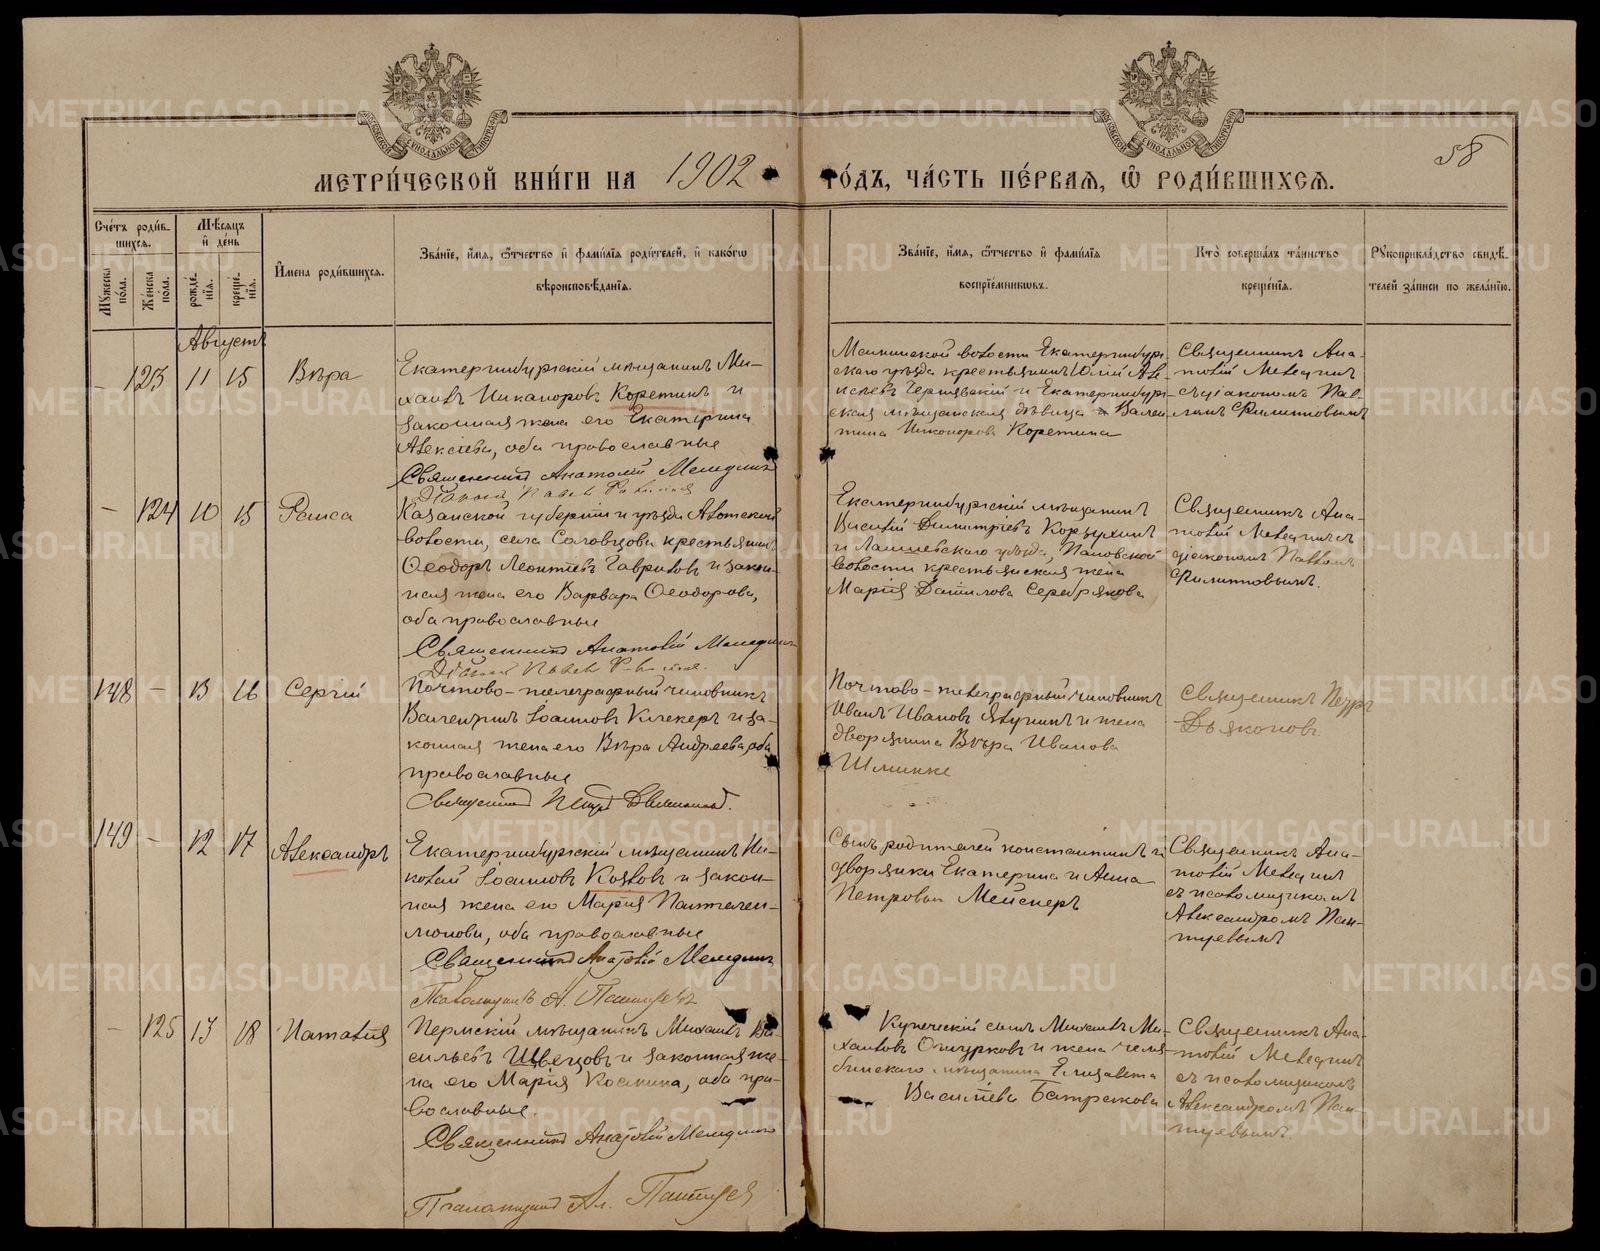 МЕТРИ́ЧЕСКОЙ КНИ́ГИ НА 1902 ГО́ДЪ, ЧА́СТЬ ПЕ́РВАЯ, Ѡ РОДИ́ВШИХСѦ.
58
Сче́тъ роди́в-
шихся.
Мꙋ́жеска
по́ла.
Же́нска
по́ла.
Мѣсяцъ
и де́нь
рожде́-
нїя.
креще́-
нїя.
И́мена роди́вшихся.
Зва́нїе, и́мя, ѻ́тчество и фами́лїя роди́телей, и како́гѡ
вѣроисповѣ́данїя.
Зва́нїе, и́мя, ѻ́тчество и фами́лїя
воспрїе́мниковъ.
Кто̀ соверша́лъ та́инство
креще́нїя.
Рꙋкоприкла́дство свидѣ́-
телей за́писи по жела́нїю.
Августъ
- 123 11 15 Вѣра
Екатеринбургскій мѣщанинъ Ми-
хаилъ Никаноровъ Коретинъ и
законная жена его Екатерина
Алексѣева, оба православные
Священникъ Анатолій
Мѣщанская дѣвица Вален-
тина Никанорова Коретина
Священникъ Ана-
толій
съ діакономъ Пав-
ломъ Филипповымъ
- 124 10 15 Раиса
Казанской губерніи и уѣзда
волости, села крестьянинъ
Ѳеодоръ Леонтіевъ Гавриловъ и закон-
ная жена его Варвара Ѳеодорова,
оба православные
Священникъ Анатолій
Екатеринбургскій мѣщанинъ
Василій Димитріевъ Корзухинъ
и Лаишевскаго уѣзда,
волости крестьянская жена
Марія Данилова Серебрякова
Священникъ Ана-
толій
діакономъ Павломъ
Филипповымъ.
148 - 13 16 Сергій
Почтово-телеграфный чиновникъ
Валентинъ Іоанновъ Клекеръ и за-
конная жена его Вѣра Андреева, оба
православные
Священникъ Петръ Дьяконовъ.
Почтово-телеграфный чиновникъ
Иванъ Ивановъ и жена
дворянина Вѣра Иванова
Священникъ Петръ
Дьяконовъ.
149 - 12 17 Александръ
Екатеринбургскій мѣщанинъ Ни-
колай Іоанновъ Козловъ и закон-
ная жена его Марія Пантелеи-
монова, оба православные
Священникъ Анатолій
Псаломщикъ А.
Сынъ родителей Константинъ и
дворянки Екатерина и Анна
Петровы Мейснеръ
Священникъ Ана-
толій
съ псаломщикомъ
Александромъ
- 125 13 18 Наталія
Пермскій мѣщанинъ Михаилъ Ва-
сильевъ Швецовъ и законная же-
на его Марія Космина, оба пра-
вославные.
Священникъ Анатолій
Псаломщикъ Ал.
Купеческій сынъ Михаилъ Ми-
хаиловъ Ошурковъ и жена челя-
бинскаго мѣщанина Елизавета
Василіева Батракова
Священникъ Ана-
толій
съ псаломщикомъ
Александромъ
METRIKI.GASO-URAL.RU